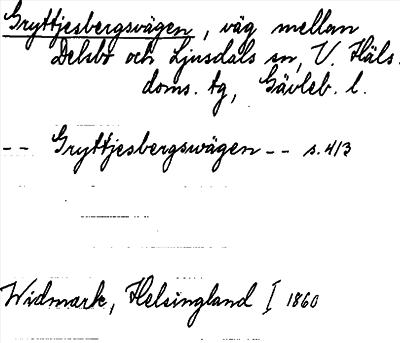 Gryttjesbergsvägen, väg mellan
Delsbo och Ljusdals sn, V. Häls.
doms. tg, Gävleb. l.
-- Gryttjesbergswägen -- s. 413
Widmark, Helsingland I 1860